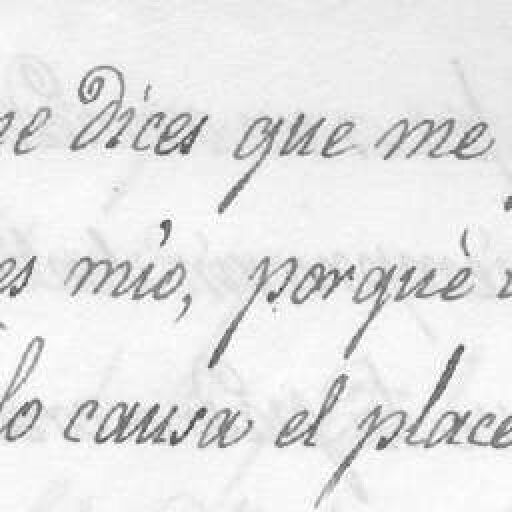 dices que me
es mío, porquè
lo causa el place